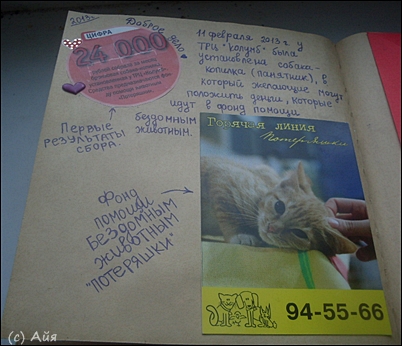 2013г.
Доброе дело
ЦИФРА
24 000
11 февраля 2013 г у
ТРЦ "Колумб" была
установлена собака-
копилка (памятник), в
который желающие могут
положить деньги, которые
идут в фонд помощи
бездомным
животным.
Первые
результаты
сбора.
Фонд
помощи
Бездомным
животным
"ПОТЕРЯШКИ"
Горячая линия
Потеряшки
94-55-66
(c) Айя